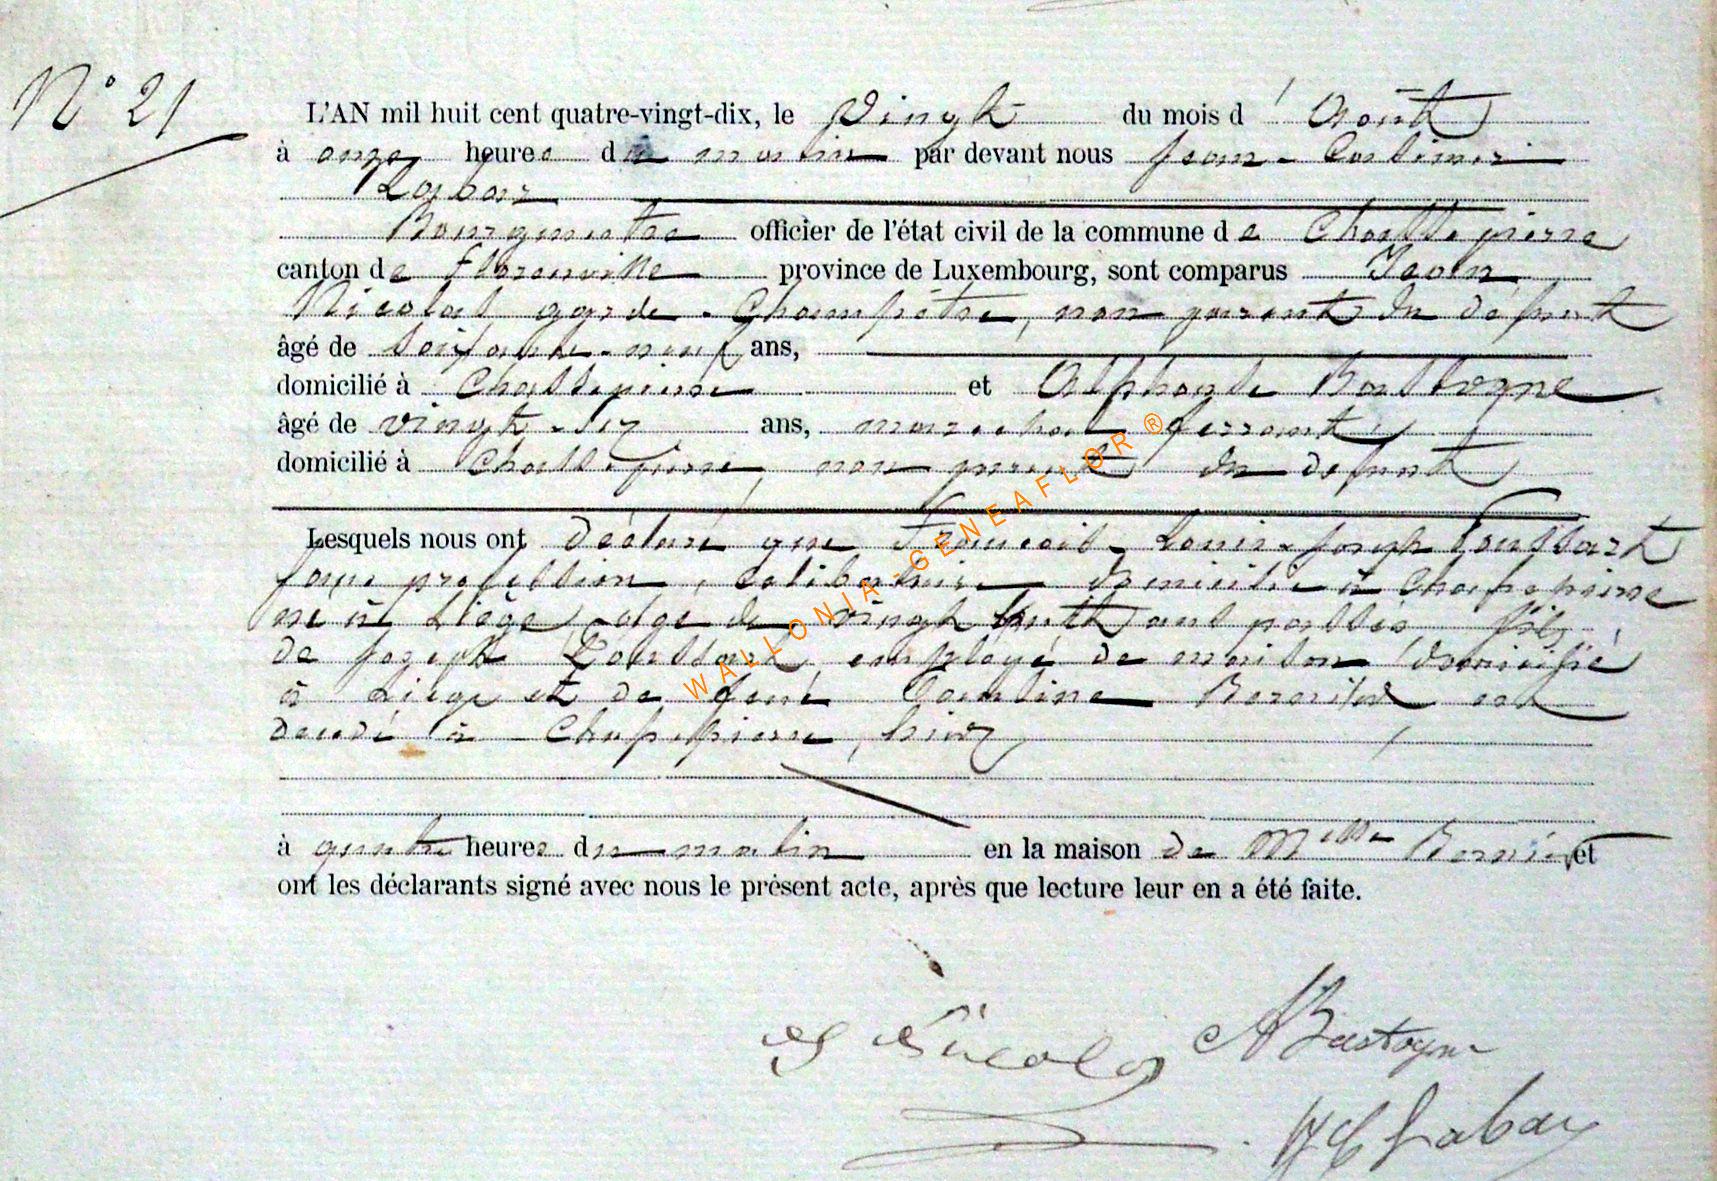 N° 21
L'AN mil huit cent quatre-vingt-dix, le vingt du mois d' Août
à onze heures du matin par devant nous Jean-Casimir
Labar
Bourgmestre officier de l'état civil de la commune de Chassepierre
canton de Florenville province de Luxembourg, sont comparus
Nicolas garde-Champêtre, non parent du défunt
âgé de soixante-neuf ans,
domicilié à Chassepierre et Alphonse Bastogne
âgé de vingt-six ans, marechal ferrant,
domicilié à Chassepierre, non parent du defunt
Lesquels nous ont déclaré que François-Louis-Joseph
sans profession, celibataire domicilié à Chassepierre
né à Liège agé de vingt huit ans passés, fils
de Joseph employé de maison domicilié
à Liège et de est
décédé à Chassepierre, hier
à quatre heures du matin en la maison de Melle et
ont les déclarants signé avec nous le présent acte, après que lecture leur en a été faite.
Nicolas ABastogne
JCLabar
WALLONIA-GENEAFLOR®